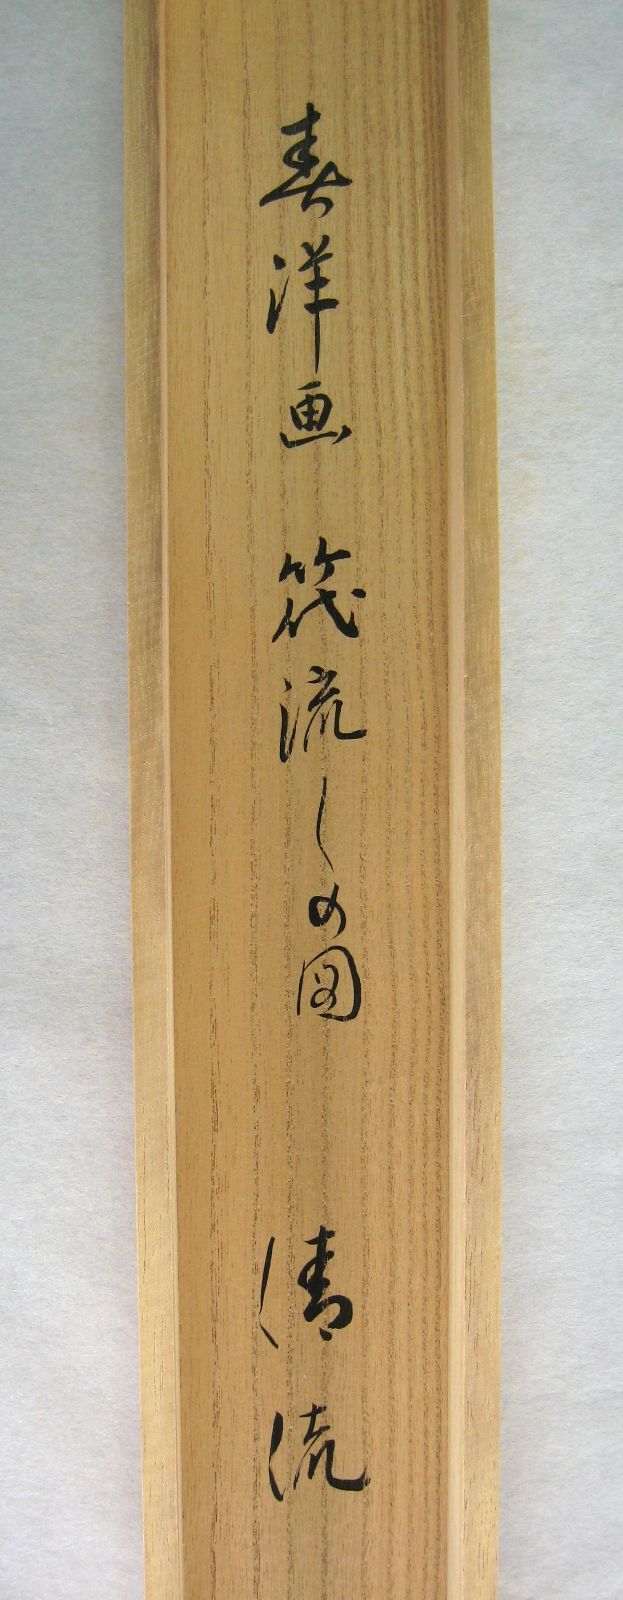 春洋画 筏流しの図 清流